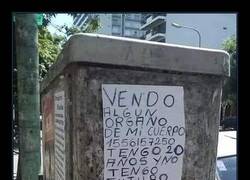 VENDO
ALGUN
ORGANO
DE MI CUERPO
1556157250
TENGO 20
AÑOS Y NO
TENGO